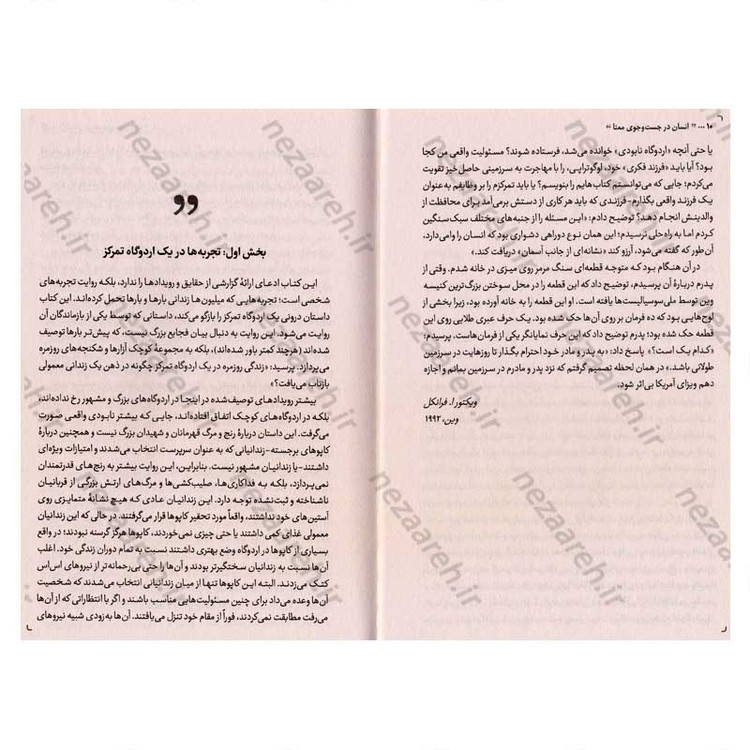 ۱۰ ... " انسان در جست‌وجوی معنا "
یا حتی آنچه «اردوگاه نابودی» خوانده می‌شد، فرستاده شوند؟ مسئولیت واقعی من کجا
بود؟ آیا باید «فرزند فکری» خود، لوگوتراپی، را با مهاجرت به سرزمینی حاصل‌خیز تقویت
می‌کردم؛ جایی که می‌توانستم کتاب‌هایم را بنویسم؟ یا باید تمرکزم را بر وظایفم به‌عنوان
یک فرزند واقعی بگذارم-فرزندی که باید هر کاری از دستش برمی‌آمد برای محافظت از
والدینش انجام دهد؟ توضیح دادم: «این مسئله را از جنبه‌های مختلف سبک‌سنگین
کردم اما به راه‌حلی نرسیدم؛ این همان نوع دوراهی دشواری بود که انسان را وامی‌دارد،
آن‌طور که گفته می‌شود، آرزو کند «نشانه‌ای از جانب آسمان» دریافت کند.»
در آن هنگام بود که متوجه قطعه‌ای سنگ مرمر روی میزی در خانه شدم. وقتی از
پدرم درباره‌ٔ آن پرسیدم، توضیح داد که این قطعه را در محل سوختن بزرگ‌ترین کنیسه
وین توسط ملی‌سوسیالیست‌ها یافته است. او این قطعه را به خانه آورده بود، زیرا بخشی از
لوح‌هایی بود که ده فرمان بر روی آن‌ها حک شده بود. یک حرف عبری طلایی روی این
قطعه حک شده بود؛ پدرم توضیح داد که این حرف نمایانگر یکی از فرمان‌هاست. پرسیدم:
«کدام یک است؟» پاسخ داد: «به پدر و مادر خود احترام بگذار تا روزهایت در سرزمین
طولانی باشد.» در همان لحظه تصمیم گرفتم که نزد پدر و مادرم در سرزمین بمانم و اجازه
دهم ویزای آمریکا بی‌اثر شود.
ویکتور ا. فرانکل
وین، ۱۹۹۲
"
بخش اول: تجربه‌ها در یک اردوگاه تمرکز
این کتاب ادعای ارائهٔ گزارشی از حقایق و رویدادها را ندارد، بلکه روایت تجربه‌های
شخصی است؛ تجربه‌هایی که میلیون‌ها زندانی بارها و بارها تحمل کرده‌اند. این کتاب
داستان درونی یک اردوگاه تمرکز را بازگو می‌کند، داستانی که توسط یکی از بازماندگان آن
روایت می‌شود. این روایت به دنبال بیان فجایع بزرگ نیست، که پیش‌تر بارها توصیف
شده‌اند (هرچند کمتر باور شده‌اند)، بلکه به مجموعهٔ کوچک آزارها و شکنجه‌های روزمره
می‌پردازد. پرسید: «زندگی روزمره در یک اردوگاه تمرکز چگونه در ذهن یک زندانی معمولی
بازتاب می‌یافت؟»
بیشتر رویدادهای توصیف‌شده در اینجا در اردوگاه‌های بزرگ و مشهور رخ نداده‌اند،
بلکه در اردوگاه‌های کوچک اتفاق افتاده‌اند، جایی که بیشتر نابودی واقعی صورت
می‌گرفت. این داستان درباره‌ٔ رنج و مرگ قهرمانان و شهیدان بزرگ نیست و همچنین درباره‌ٔ
کاپوهای برجسته-زندانیانی که به عنوان سرپرست انتخاب می‌شدند و امتیازات ویژه‌ای
داشتند-یا زندانیان مشهور نیست. بنابراین، این روایت بیشتر به رنج‌های قدرتمندان
نمی‌پردازد، بلکه به فداکاری‌ها، صلیب‌کشی‌ها و مرگ‌های ارتش بزرگی از قربانیان
ناشناخته و ثبت‌نشده توجه دارد. این زندانیان عادی که هیچ نشانهٔ متمایزی روی
آستین‌های خود نداشتند، واقعاً مورد تحقیر کاپوها قرار می‌گرفتند. در حالی که این زندانیان
معمولی غذای کمی داشتند یا حتی چیزی نمی‌خوردند، کاپوها هرگز گرسنه نبودند؛ در واقع
بسیاری از کاپوها در اردوگاه وضع بهتری داشتند نسبت به تمام دوران زندگی خود. اغلب
آن‌ها نسبت به زندانیان سختگیرتر بودند و آن‌ها را حتی بی‌رحمانه‌تر از نیروهای اس‌اس
کتک می‌زدند. البته این کاپوها تنها از میان زندانیانی انتخاب می‌شدند که شخصیت
آن‌ها وعده می‌داد برای چنین مسئولیت‌هایی مناسب باشند و اگر با انتظاراتی که از آن‌ها
می‌رفت مطابقت نمی‌کردند، فوراً از مقام خود تنزل می‌یافتند. آن‌ها به‌زودی شبیه نیروهای
nezaareh.ir